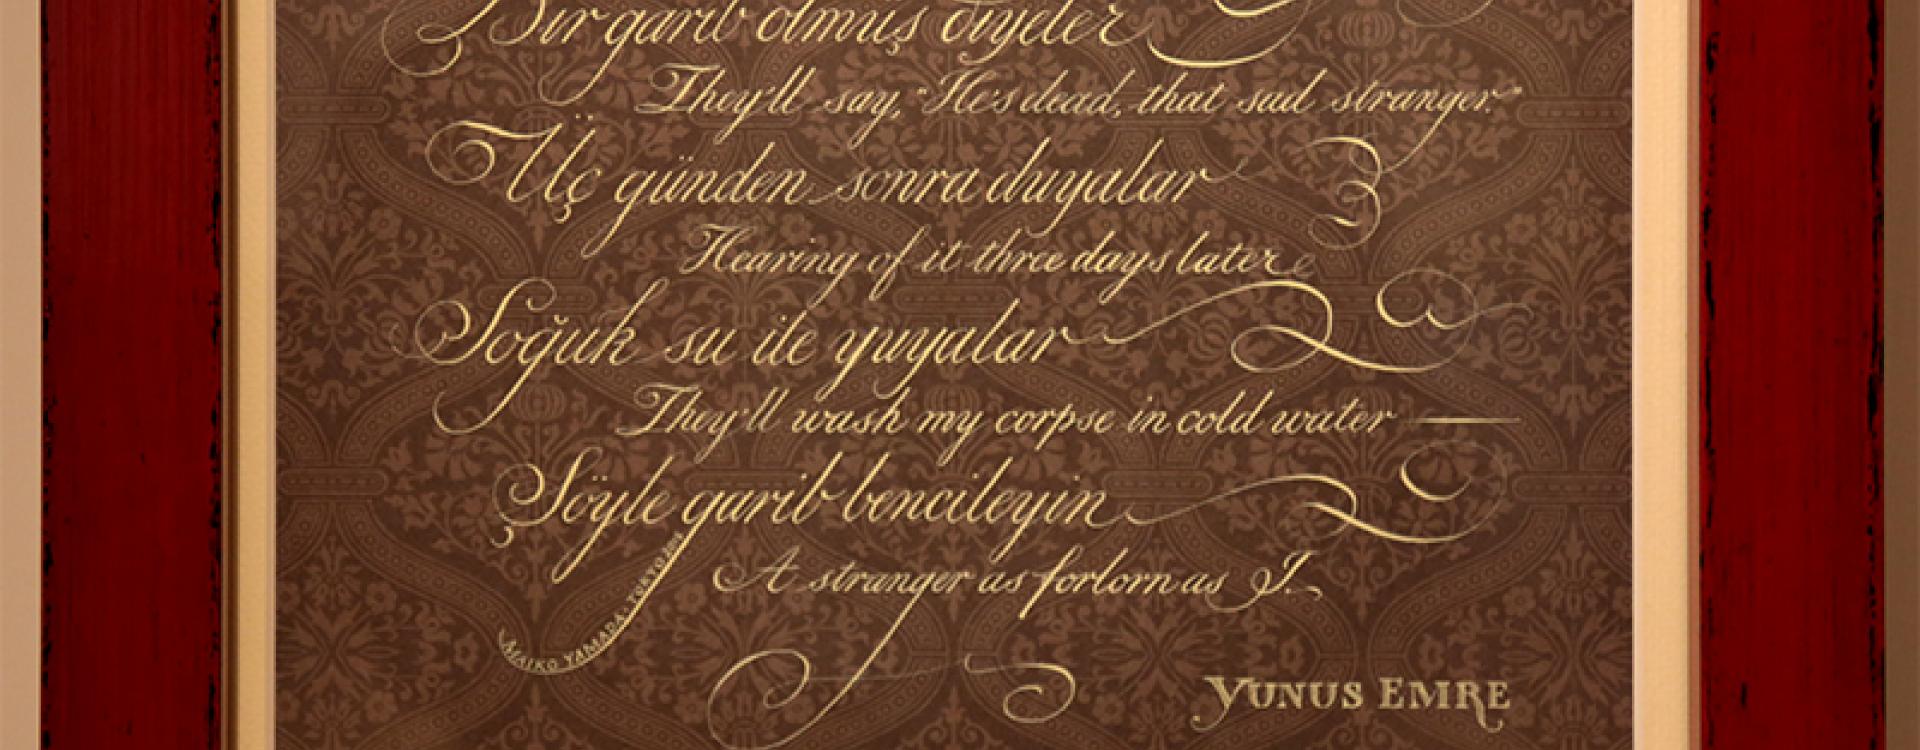 Bir garib ölmüş diyeler
They'll say, "He's dead, that sad stranger."
Üç günden sonra duyalar
Hearing of it three days later
Soğuk su ile yuyalar
They'll wash my corpse in cold water —
Şöyle garib bencileyin
A stranger as forlorn as I.
MAIKO YAMADA, TOKYO
YUNUS EMRE